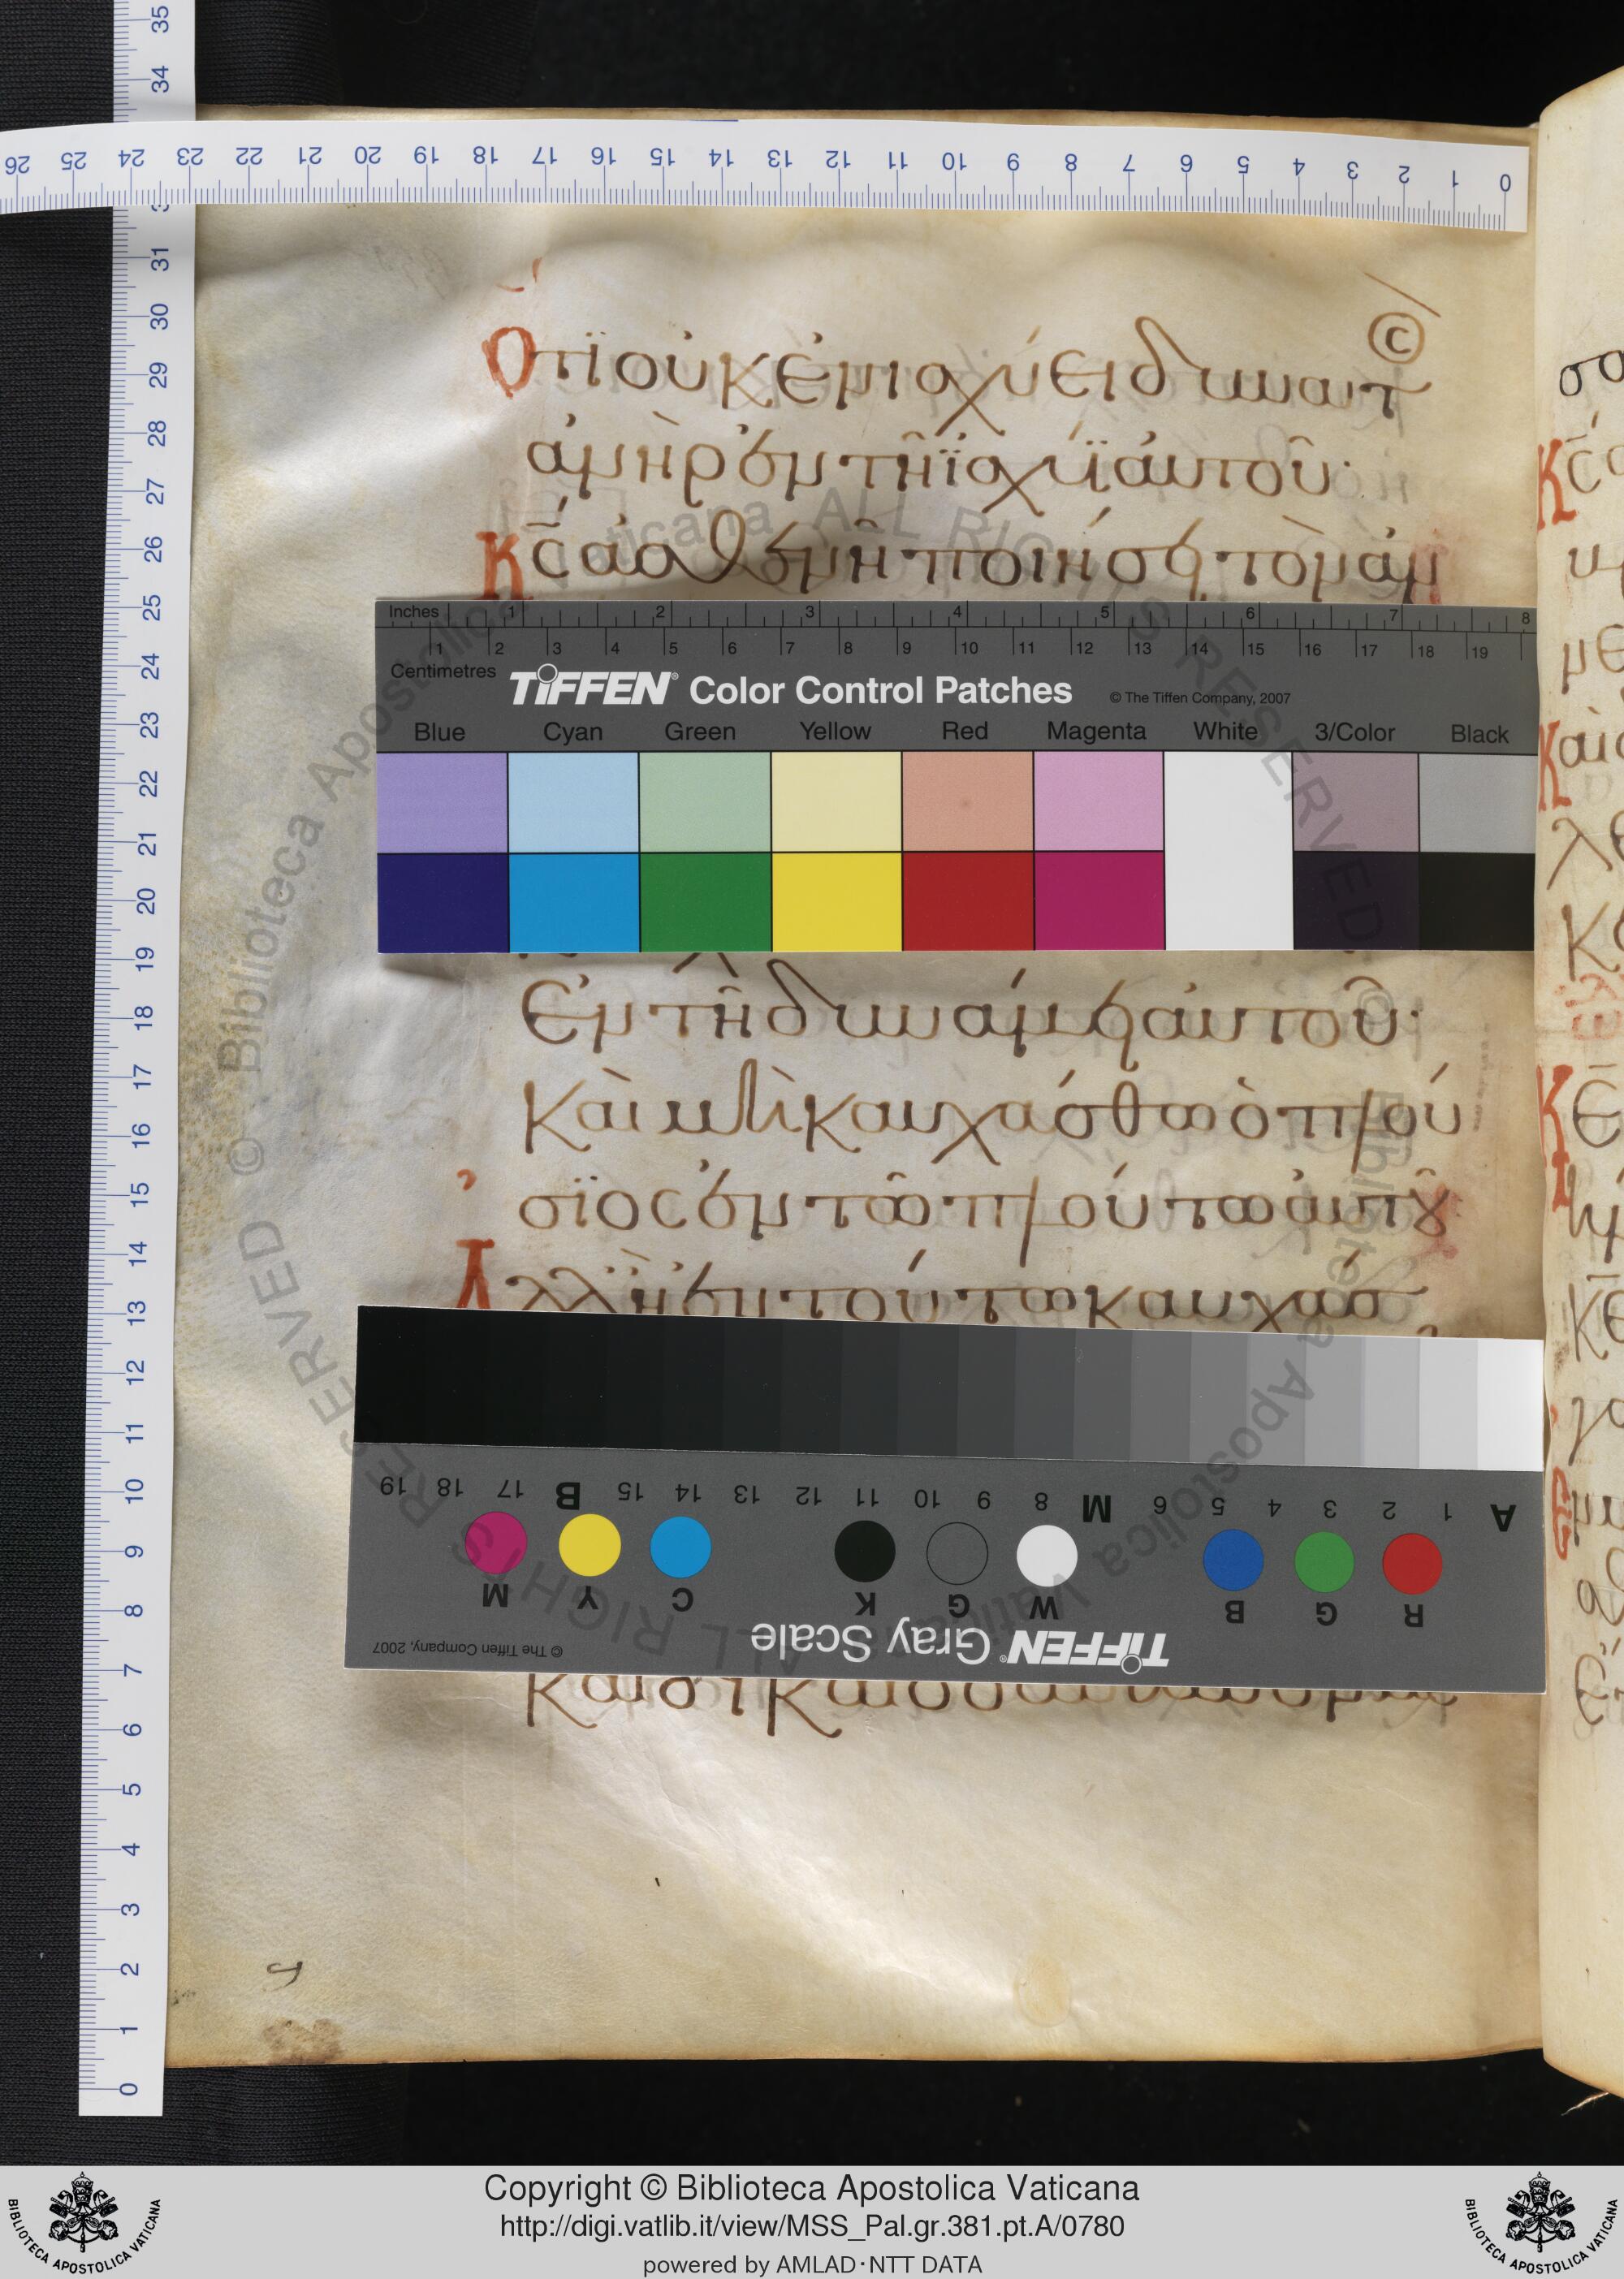 Ὅτι οὐκ ἐν ἰσχύει δυνατ
ἀνὴρ ἐν τῆ ἰσχύϊ αὐτοῦ·
Κς ἀσθενῆ ποιήσει τὸν ἀν
Inches 1 2 3 4 5 6 7 8
1 2 3 4 5 6 7 8 9 10 11 12 13 14 15 16 17 18 19
Centimetres
TIFFEN® Color Control Patches © The Tiffen Company, 2007
Blue Cyan Green Yellow Red Magenta White 3/Color Black
ἐν τῆ δυνάμει αὐτοῦ·
Καὶ μὴ καυχάσθω ὁ πλού
σϊος ἐν τῶ πλούτω αὐτοῦ
Ἀλλ' ἢ ἐν τούτω καυχάσ
A 1 2 3 4 5 6 M 8 9 10 11 12 13 14 15 B 17 18 19
R G B W G K C Y M
TIFFEN® Gray Scale
© The Tiffen Company, 2007
© Biblioteca Apostolica Vaticana ALL RIGHTS RESERVED
© Biblioteca Apostolica Vaticana ALL RIGHTS RESERVED
Copyright © Biblioteca Apostolica Vaticana
http://digi.vatlib.it/view/MSS_Pal.gr.381.pt.A/0780
powered by AMLAD·NTT DATA
BIBLIOTECA APOSTOLICA VATICANA
BIBLIOTECA APOSTOLICA VATICANA